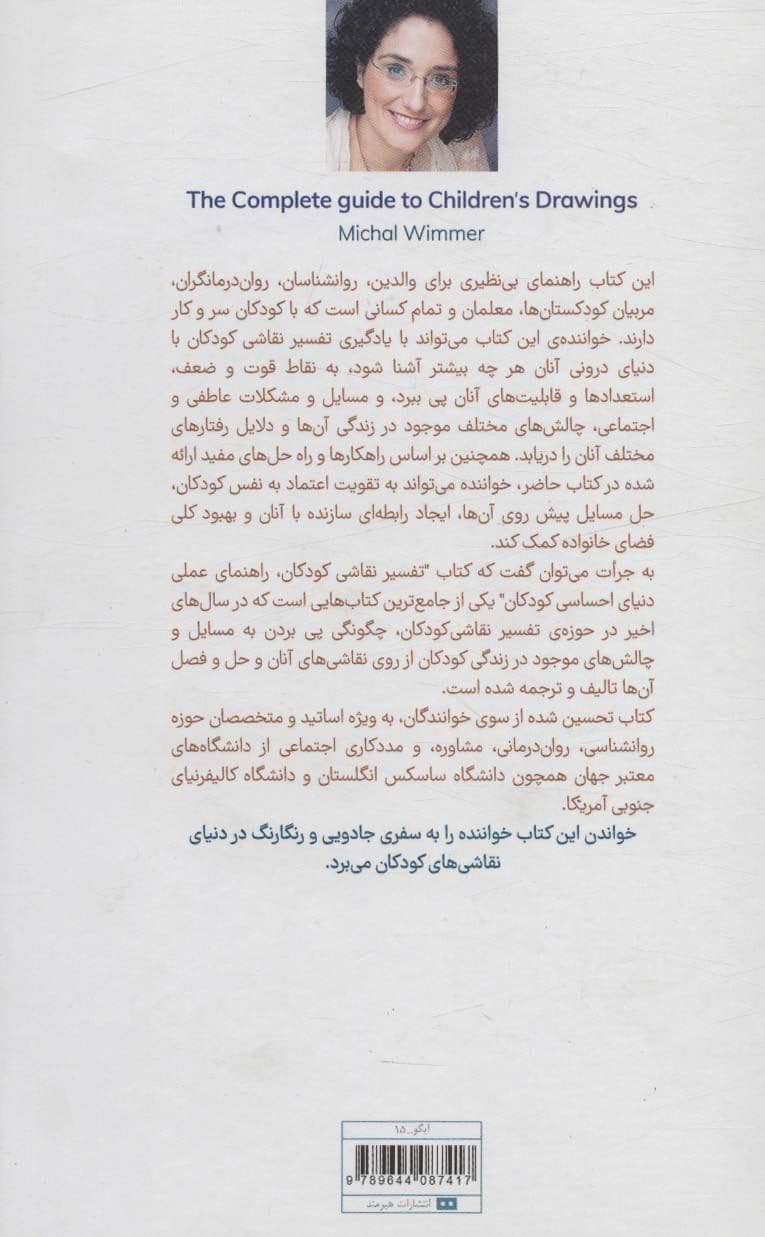 The Complete guide to Children's Drawings
Michal Wimmer
این کتاب راهنمای بی‌نظیری برای والدین، روانشناسان، روان‌درمانگران،
مربیان کودکستان‌ها، معلمان و تمام کسانی است که با کودکان سر و کار
دارند. خواننده‌ی این کتاب می‌تواند با یادگیری تفسیر نقاشی کودکان با
دنیای درونی آنان هر چه بیشتر آشنا شود، به نقاط قوت و ضعف،
استعدادها و قابلیت‌های آنان پی ببرد، و مسایل و مشکلات عاطفی و
اجتماعی، چالش‌های مختلف موجود در زندگی آن‌ها و دلایل رفتارهای
مختلف آنان را دریابد. همچنین بر اساس راهکارها و راه حل‌های مفید ارائه
شده در کتاب حاضر، خواننده می‌تواند به تقویت اعتماد به نفس کودکان،
حل مسایل پیش روی آن‌ها، ایجاد رابطه‌ای سازنده با آنان و بهبود کلی
فضای خانواده کمک کند.
به جرأت می‌توان گفت که کتاب "تفسیر نقاشی کودکان، راهنمای عملی
دنیای احساسی کودکان" یکی از جامع‌ترین کتاب‌هایی است که در سال‌های
اخیر در حوزه‌ی تفسیر نقاشی‌کودکان، چگونگی پی بردن به مسایل و
چالش‌های موجود در زندگی کودکان از روی نقاشی‌های آنان و حل و فصل
آن‌ها تالیف و ترجمه شده است.
کتاب تحسین شده از سوی خوانندگان، به ویژه اساتید و متخصصان حوزه
روانشناسی، روان‌درمانی، مشاوره، و مددکاری اجتماعی از دانشگاه‌های
معتبر جهان همچون دانشگاه ساسکس انگلستان و دانشگاه کالیفرنیای
جنوبی آمریکا.
خواندن این کتاب خواننده را به سفری جادویی و رنگارنگ در دنیای
نقاشی‌های کودکان می‌برد.
ایگو_۱۵
9 789644 087417
انتشارات هیرمند